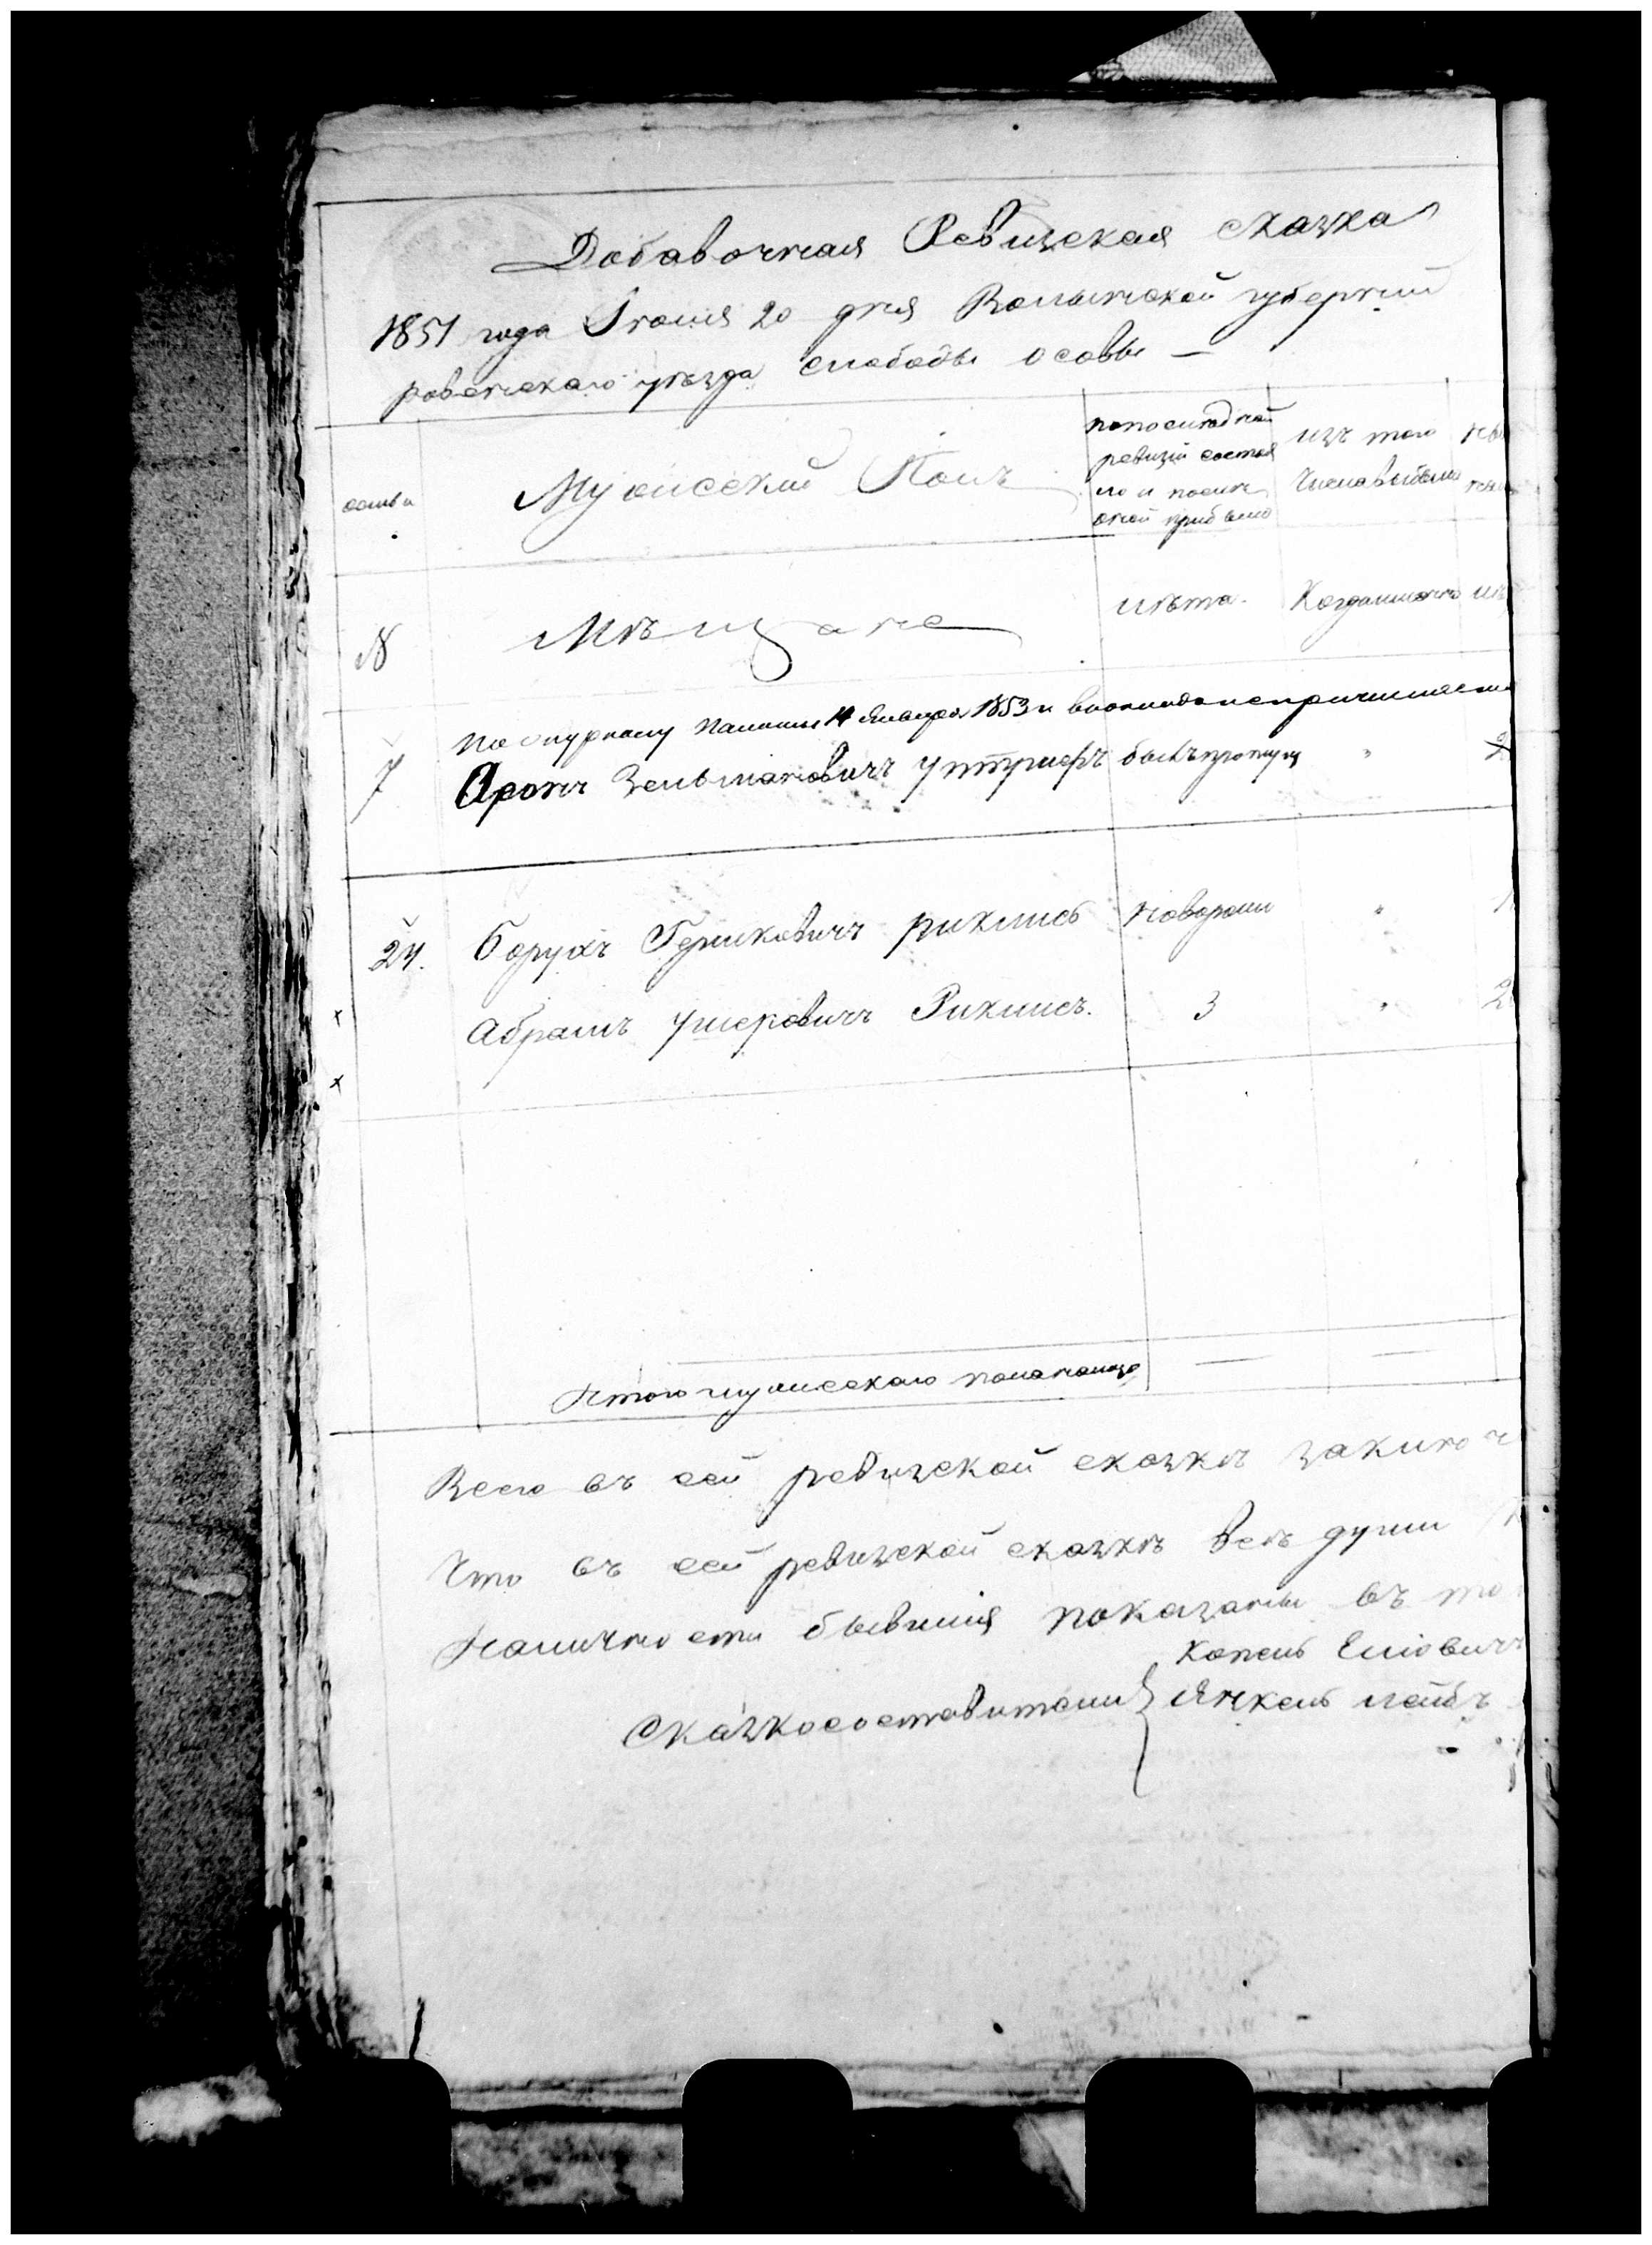 Добавочная Ревизская сказка
1851 года Iюня 20 дня Волынской губернии
ровенского уезда слободы осовы —
семьи
Мужеский Полъ
попоследней
ревизии состоя
ло и после
оной прибыло
изъ того
числа выбыло
№
Мѣщане
лѣта.
Когдаименно
По журналу Палаты 14 Января 1853 и
7
Аронъ Зельмановичъ былъпропущ " 2
24.
Борухъ Гершковичъ рихлисъ новорожд " 1
Абрамъ Ушеровичъ Рихлисъ. 3 " 2
х
х
Итого мужескаго пола налицо — —
Всего въ сей ревизской сказкѣ заключ
Что въ сей ревизской сказкѣ всѣ души
Наличности бывшия показаны въ то
Сказкосоставители
Копель Елiовичъ
Янкель лейбъ